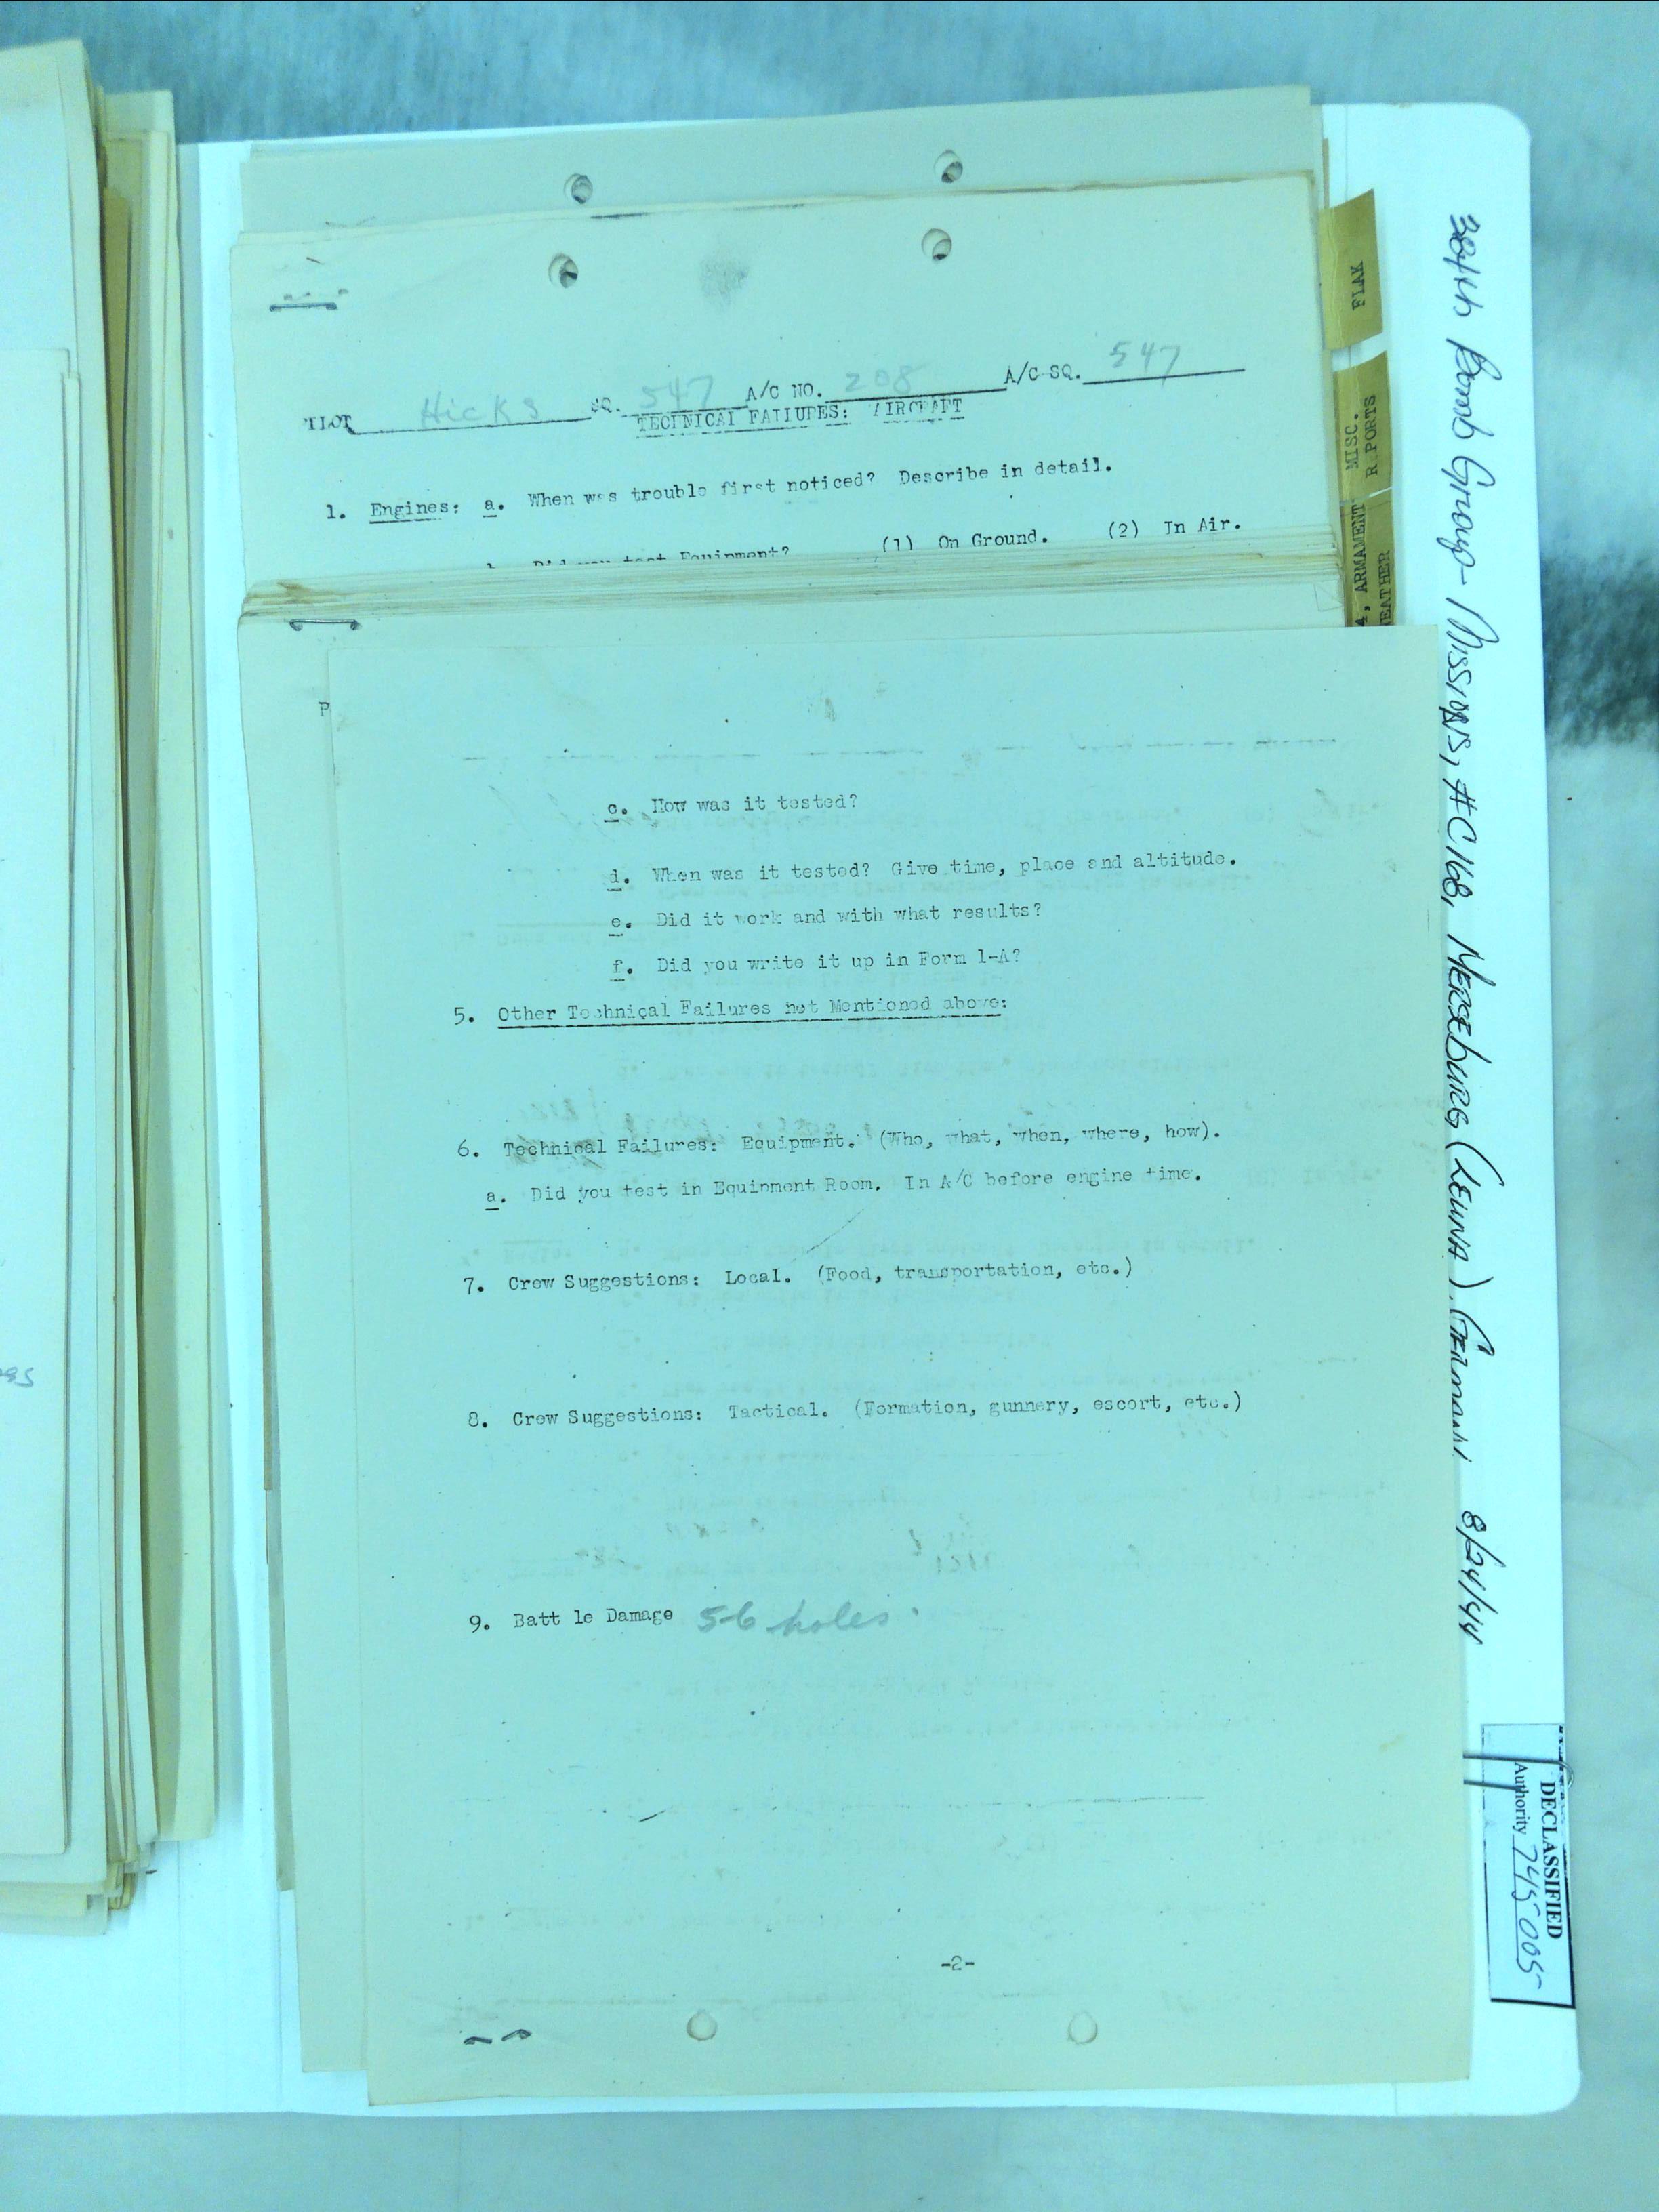 PILOT Hicks SQ. 547 A/C NO. 208 A/C SQ. 547
TECHNICAL FAILURES: AIRCRAFT
1. Engines: a. When was trouble first noticed? Describe in detail.
Did you test Equipment? (1) On Ground. (2) In Air.
P
c. How was it tested?
d. When was it tested? Give time, place and altitude.
e. Did it work and with what results?
f. Did you write it up in Form 1-A?
5. Other Technical Failures not Mentioned above:
6. Technical Failures: Equipment. (Who, what, when, where, how).
a. Did you test in Equipment Room. In A/C before engine time.
7. Crew Suggestions: Local. (Food, transportation, etc.)
8. Crew Suggestions: Tactical. (Formation, gunnery, escort, etc.)
9. Batt le Damage 5-6 holes.
-2-
FLAK
MISC.
R PORTS
4, ARMAMENT
EATHER
384th Bomb Group - Missions, #C168, Merseburg (Leuna), Germany 8/24/44
DECLASSIFIED
Authority 745005